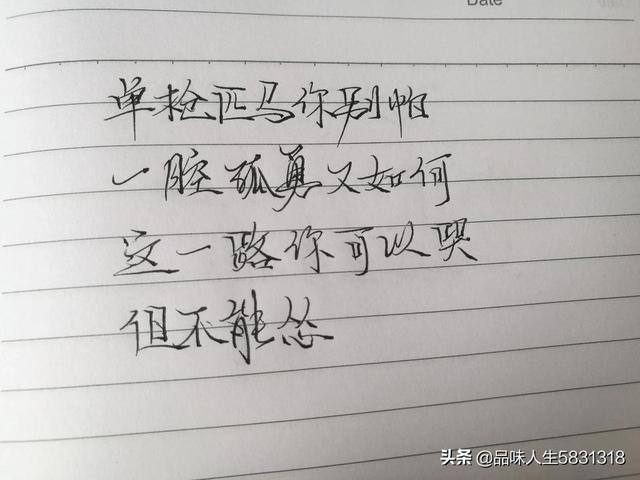 Date
单枪匹马你别怕
一腔孤勇又如何
这一路你可以哭
但不能怂
头条 @品味人生5831318